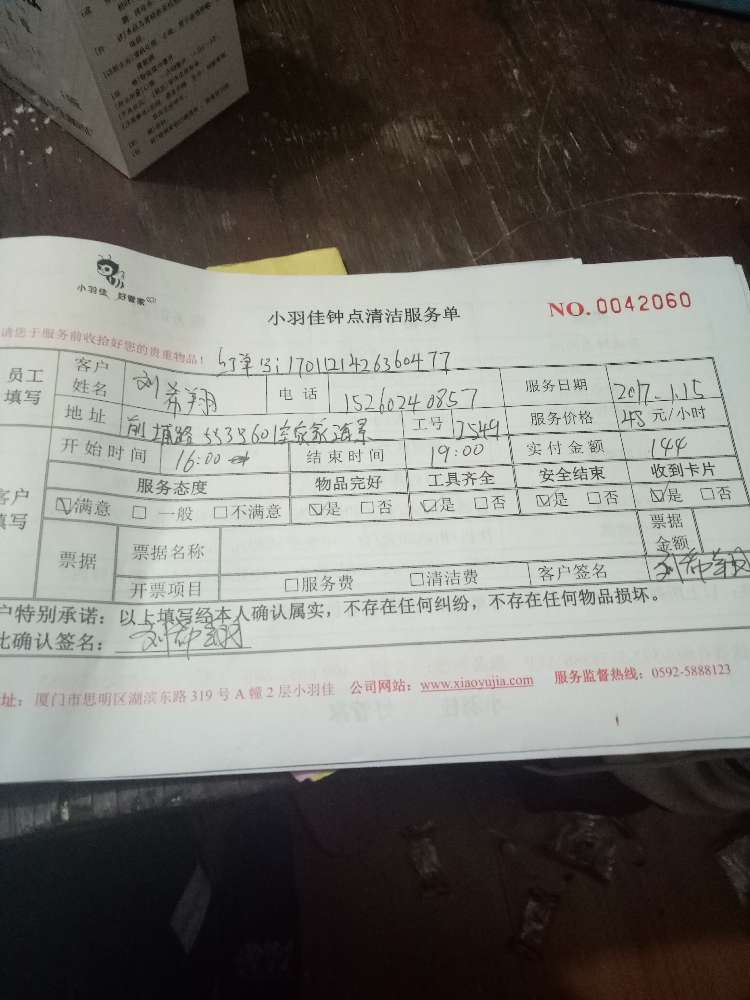 小羽佳 好管家
小羽佳钟点清洁服务单
NO. 0042060
请您于服务前收拾好您的贵重物品！
订单号:1701121426360477
员工填写
客户姓名 刘希翔 电话 15260240857 服务日期 2017.1.15
地址 前埔路 工号 2549 服务价格 48 元/小时
开始时间 16:00 结束时间 19:00 实付金额 144
客户填写
服务态度 物品完好 工具齐全 安全结束 收到卡片
☑满意 □ 一般 □不满意 ☑是 □否 ☑是 □否 ☑是 □否 ☑是 □否
票据 票据名称 票据金额
开票项目 □服务费 □清洁费 客户签名 刘希翔
户特别承诺：以上填写经本人确认属实，不存在任何纠纷，不存在任何物品损坏。
此确认签名：刘希翔
址：厦门市思明区湖滨东路 319 号 A 幢 2 层小羽佳 公司网站：www.xiaoyujia.com 服务监督热线：0592-5888123